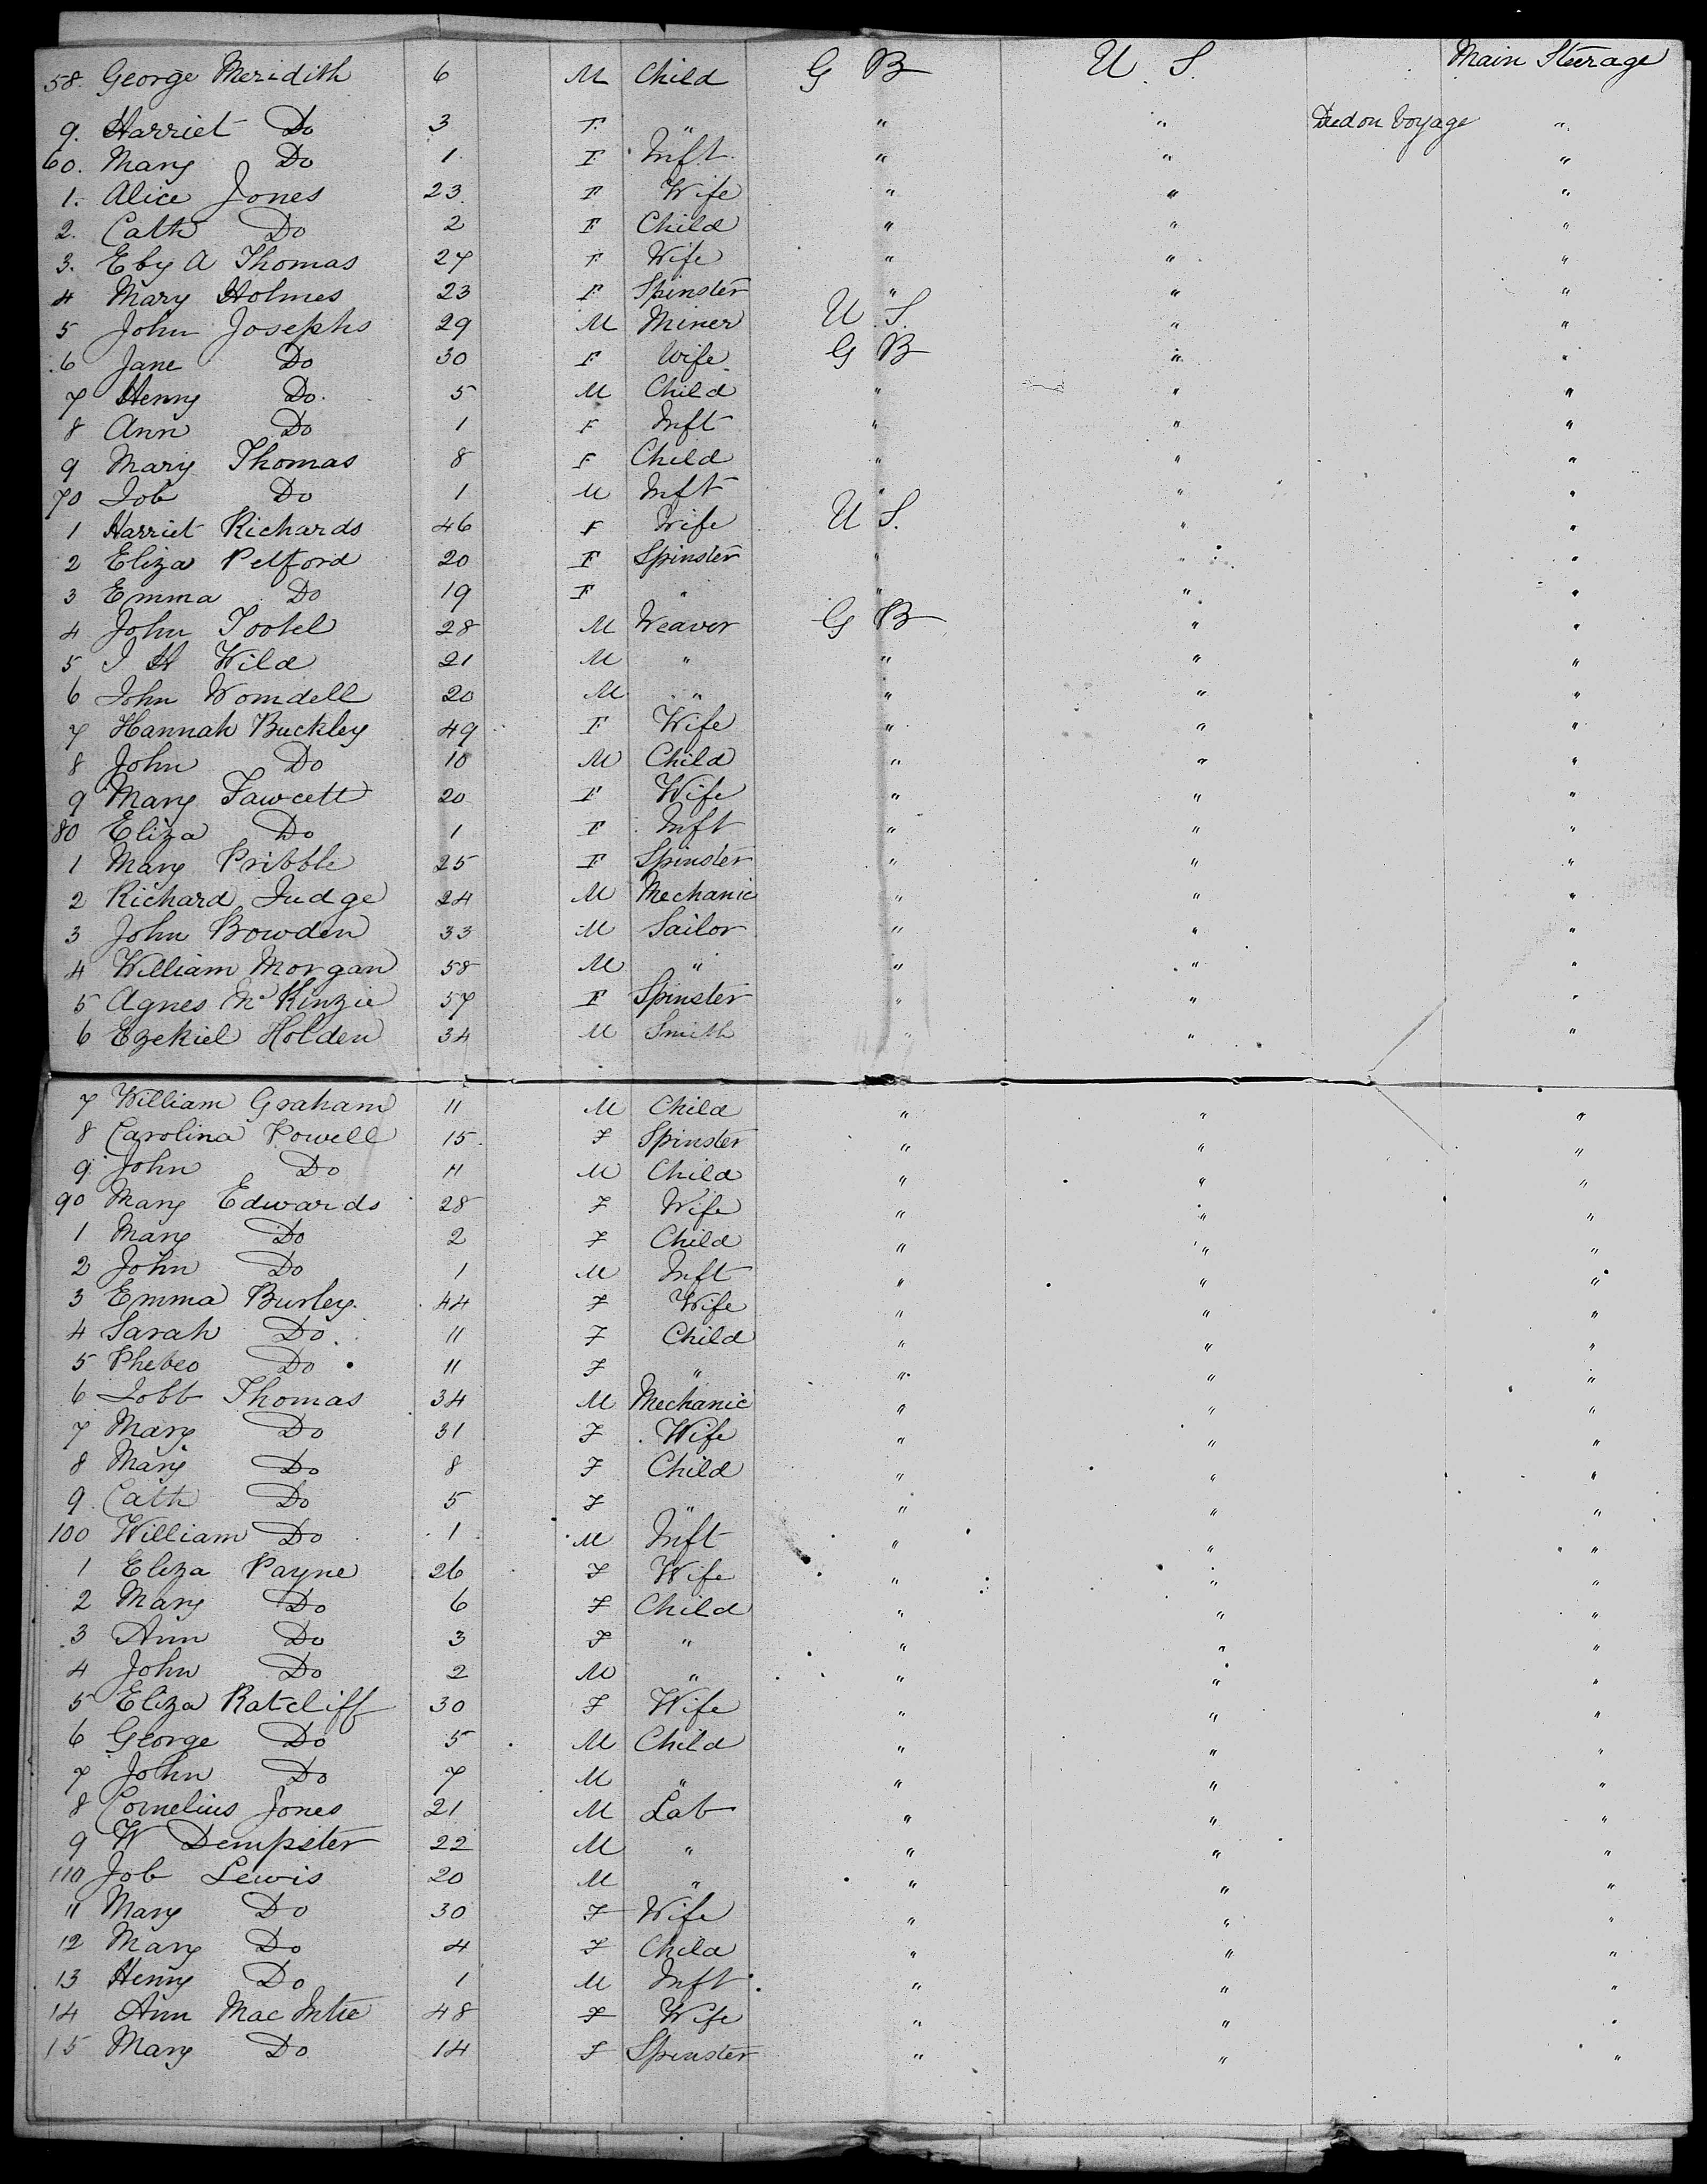 58. George Meridith 6 M Child G B U. S. Main Steerage
9. Harriet Do 3 F. " " " Died on Voyage "
60. Mary Do 1 F Inft. " " "
1. Alice Jones 23. F Wife " " "
2. Cath Do 2 F Child " " "
3. Eby A Thomas 27 F Wife " " "
4 Mary Holmes 23 F Spinster " " "
5 John Josephs 29 M Miner U. S. " "
6 Jane Do 30 F Wife G B " "
7 Henry Do. 5 M Child " " "
8 Ann Do 1 F Inft " " "
9 Mary Thomas 8 F Child " " "
70 Job Do 1 M Inft " " "
1 Harriet Richards 46 F Wife U S. " "
2 Eliza Pelford 20 F Spinster " " "
3 Emma Do 19 F " " " "
4 John Tootel 28 M Weaver G B " "
5 J H Wild 21 M " " " "
6 John Womdell 20 M " " " "
7 Hannah Buckley 49 F Wife " " "
8 John Do 10 M Child " " "
9 Mary Fawcett 20 F Wife " " "
80 Eliza Do 1 F Inft " " "
1 Mary Pribble 25 F Spinster " " "
2 Richard Judge 24 M Mechanic " " "
3 John Bowden 33 M Sailor " " "
4 William Morgan 58 M " " " "
5 Agnes Mc Kinzie 57 F Spinster " " "
6 Ezekiel Holden 34 M Smith " " "
7 William Graham 11 M Child " " "
8 Carolina Powell 15. F Spinster " " "
9 John Do 11 M Child " " "
90 Mary Edwards 28 F Wife " " "
1 Mary Do 2 F Child " " "
2 John Do 1 M Inft " " "
3 Emma Burley. 44 F Wife " " "
4 Sarah Do. 11 F Child " " "
5 Phebeo Do 11 F " " " "
6 Jobb Thomas 34 M Mechanic " " "
7 Mary Do 31 F Wife " " "
8 Mary Do 8 F Child " " "
9 Cath Do 5 F " " " "
100 William Do 1 M Inft " " "
1 Eliza Payne 26 F Wife " " "
2 Mary Do 6 F Child " " "
3 Ann Do 3 F " " " "
4 John Do 2 M " " " "
5 Eliza Ratcliff 30 F Wife " " "
6 George Do 5 M Child " " "
7 John Do 7 M " " " "
8 Cornelius Jones 21 M Lab " " "
9 W Dempster 22 M " " " "
110 Job Lewis 20 M " " " "
11 Mary Do 30 F Wife " " "
12 Mary Do 4 F Child " " "
13 Henry Do 1 M Inft " " "
14 Ann Mac Intie 48 F Wife " " "
15 Mary Do 14 F Spinster " " "